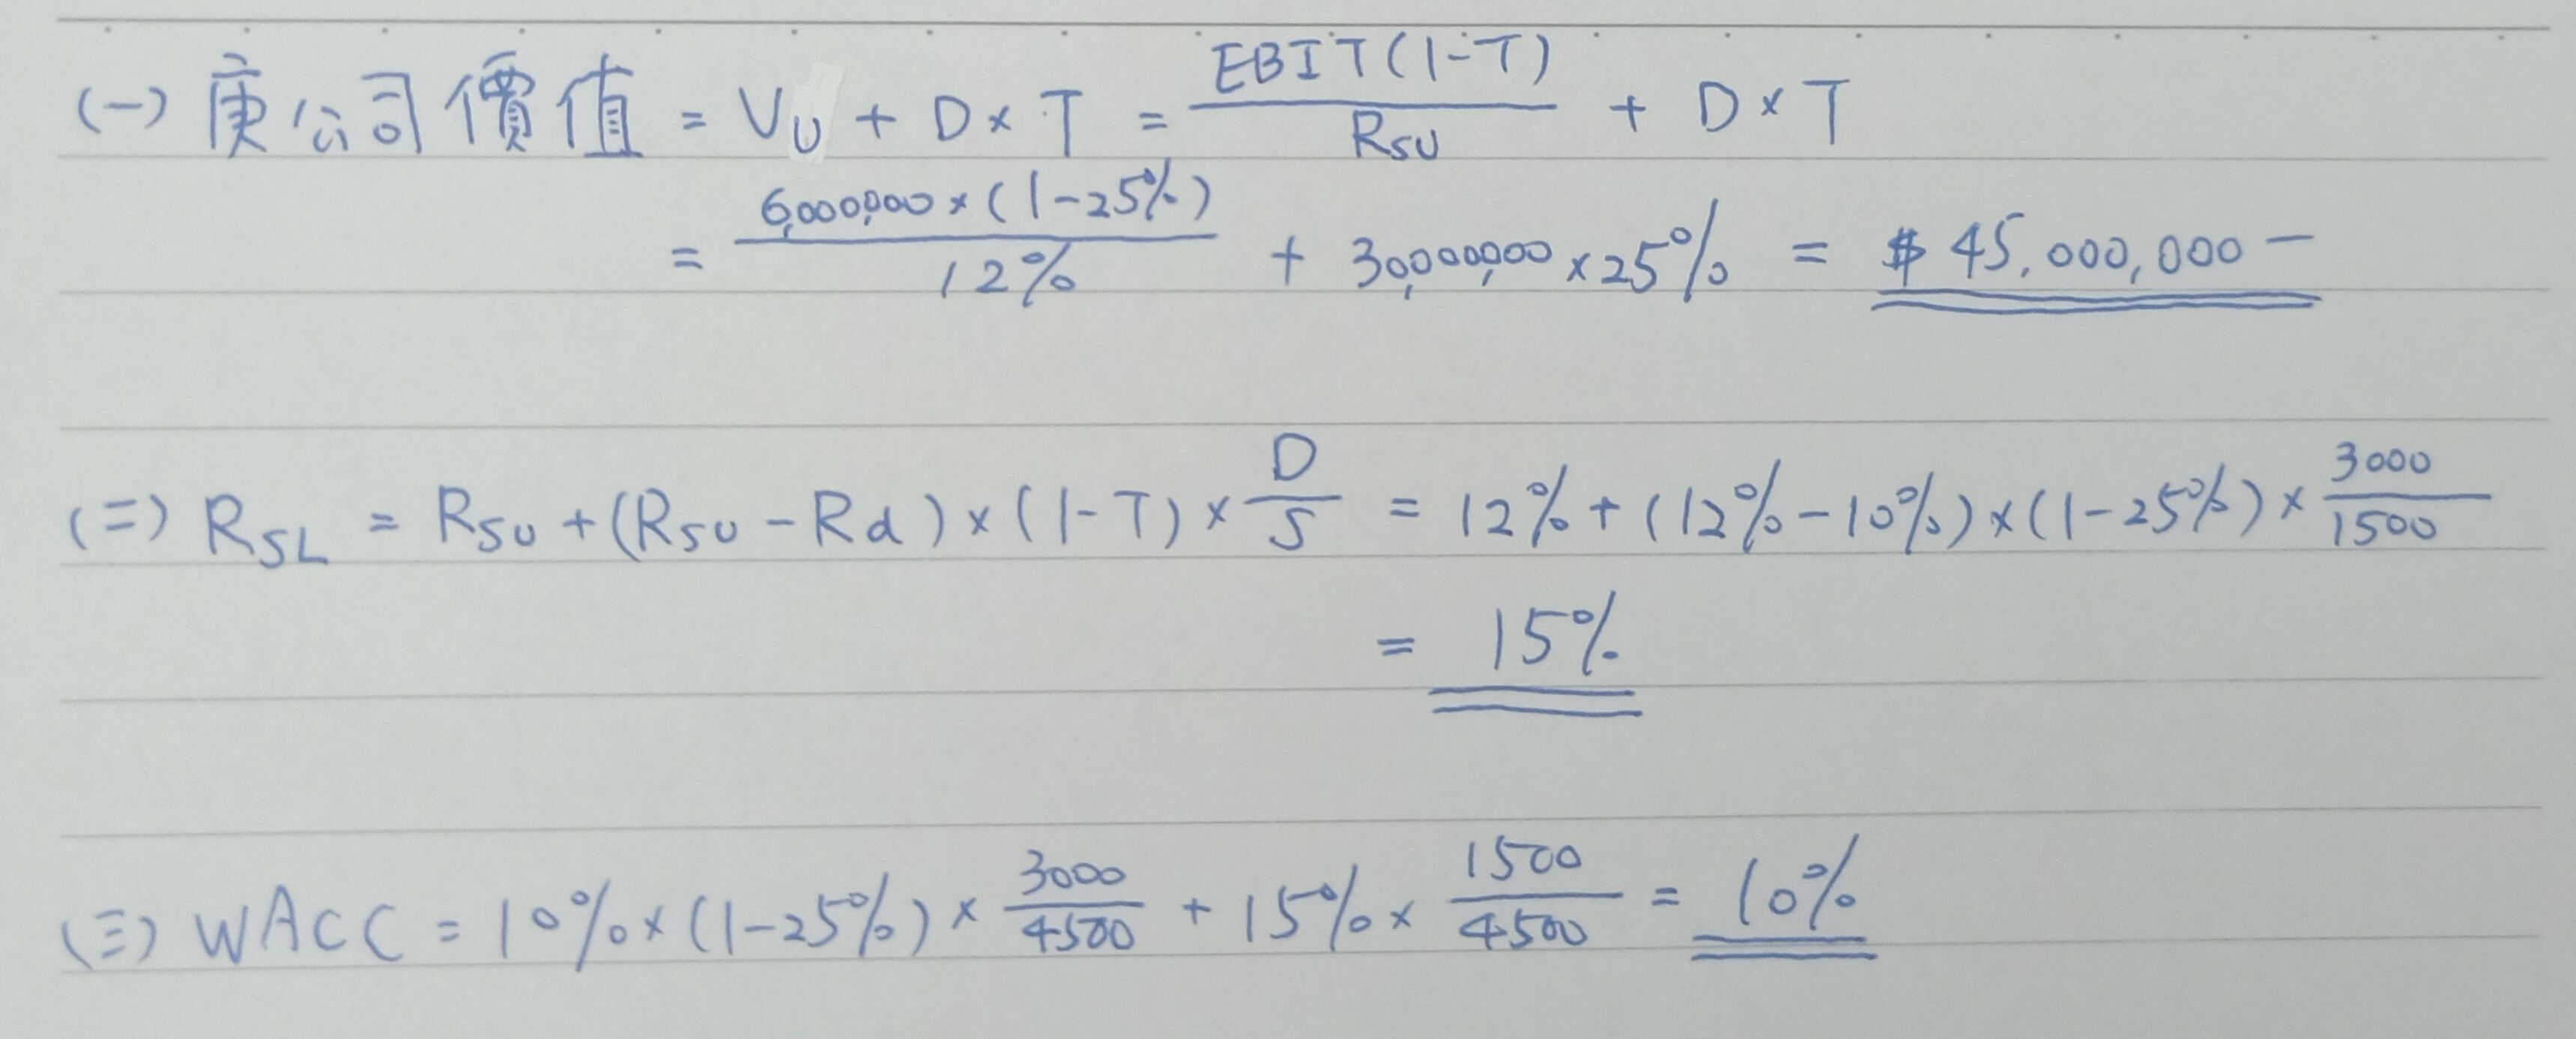 (一) 庚公司價值 = VU + D × T = EBIT(1-T) / RSU + D × T
= 6,000,000 × (1-25%) / 12% + 30,000,000 × 25% = $45,000,000-
(二) RSL = RSU + (RSU - Rd) × (1-T) × D / S = 12% + (12% - 10%) × (1-25%) × 3000 / 1500
= 15%
(三) WACC = 10% × (1-25%) × 3000 / 4500 + 15% × 1500 / 4500 = 10%